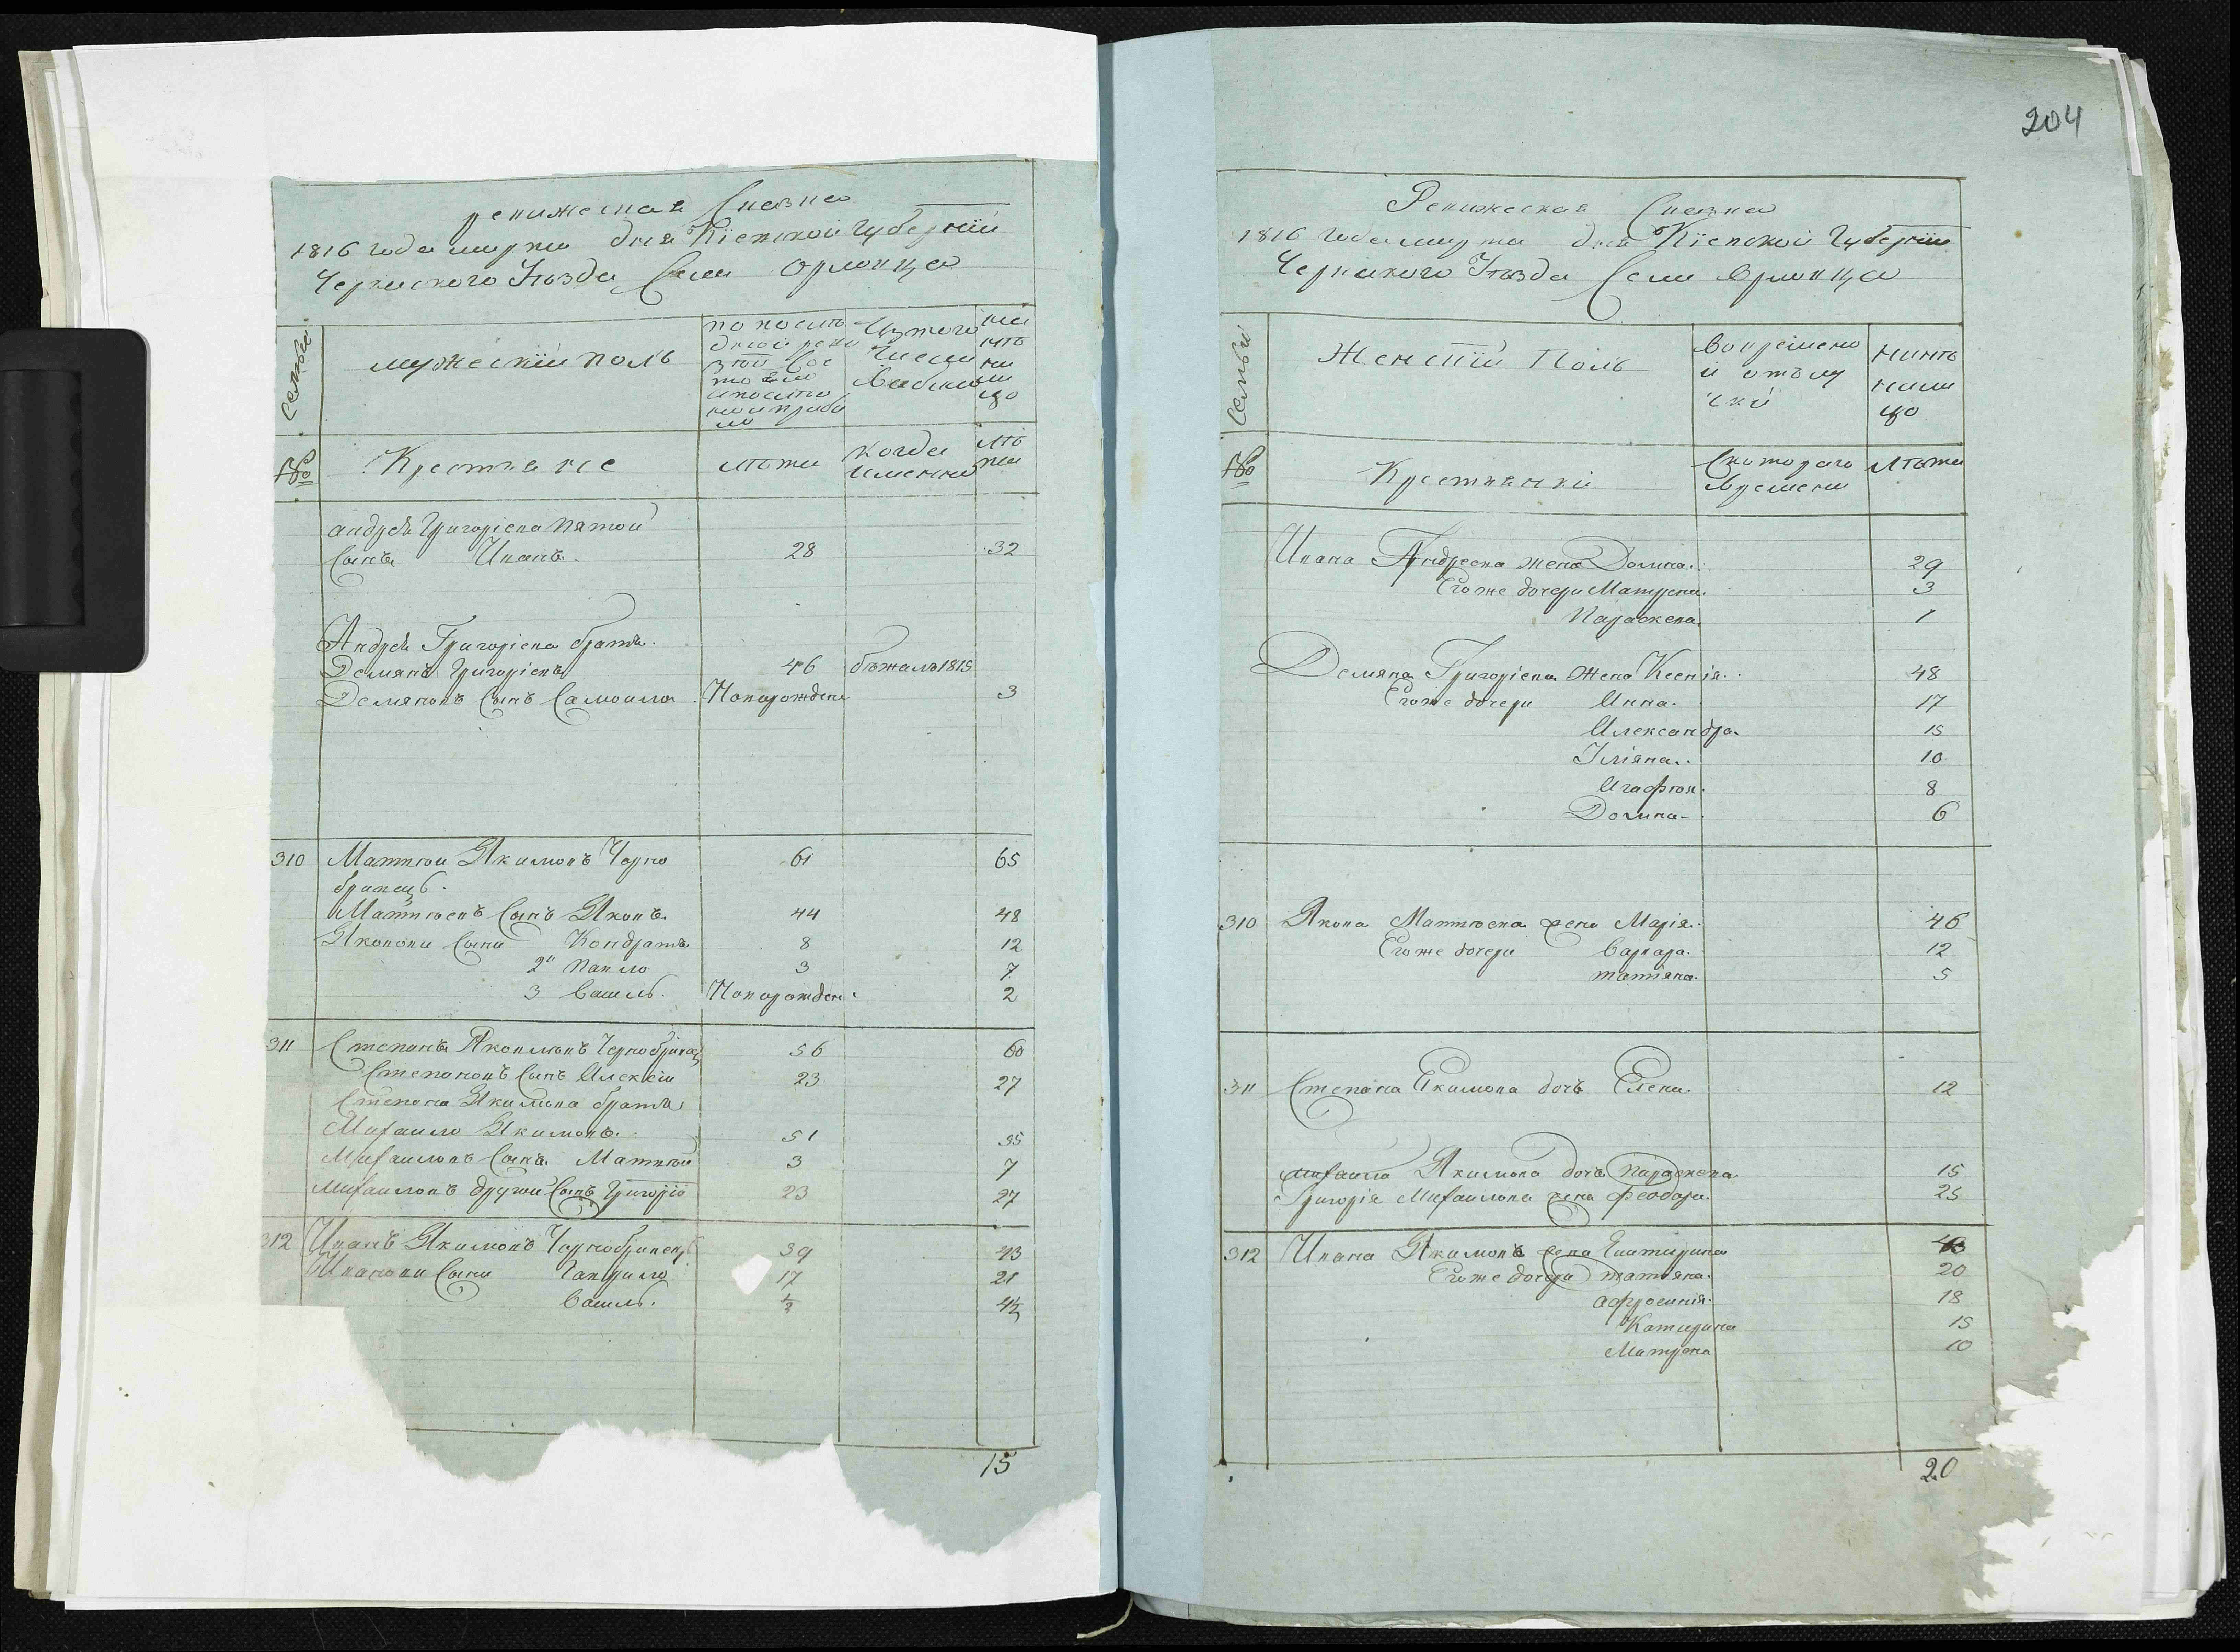 ревижская Сказка
1816 года марта дня Кіевской Губерніи
Черкаского Уѣзда Села Орловца
Семьи
мужескій полъ
по послѣ
дней реви
зіи Сос
тояли
и послѣ
ней прибы
ло
Изъ того
Числа
Выбыло
ны
нѣ
на
ли
цо
№
Крестяне
лѣта
когда
именно
лѣ
та
андрея Григоріева пятой
Сынъ Иванъ 28 32
Андрея Григоріева братъ
Демянъ Григоріевъ 46 бѣжалъ 1815
Демяновъ Сынъ Самоила Новорожден 3
310 Матвѣи Якимовъ Чорно 61 65
бривецъ
Матвѣевъ Сынъ Яковъ 44 48
Яковови Сыни Кондратъ 8 12
2" Павло 3 7
3 Василь Новорожден 2
311 Степанъ Якимовъ Чернобривец 56 60
Степановъ Сынъ Алексѣи 23 27
Степана Якимова братъ
Михаило Якимовъ 51 55
Михаиловъ Сынъ Матвѣи 3 7
Михаиловъ другои Сынъ Григорій 23 27
312 Иванъ Якимовъ Чорнобривец 39 43
Иванови Сыни Гаврило 17 21
Василь ½ 4½
15
204
Ревижская Сказка
1816 года марта дня Кіевской Губерніи
Черкаского Уѣзда Села Орловца
Семьи
Женскій Полъ
Во времено
й отълу
чки
Нинѣ
нали
цо
№
Крестянки
Скоторого
времени
лѣта
Ивана Андреева жена Домна 29
Егоже дочери Матрена 3
Параскева 1
Демяна Григоріева жена Ксенія 48
Егоже дочери Анна 17
Александра 15
Уліяна 10
Агафия 8
Домна 6
310 Якова Матвѣева жена Марія 46
Егоже дочери Варвара 12
татяна 5
311 Степана Екимова дочь Елена 12
Михаила Якимова дочь параскева 15
Григорія Михаилова жена феодора 25
312 Ивана Якимова жена Екатерина 43
Егоже дочери татяна 20
афросинія 18
Катерина 15
Матрена 10
20